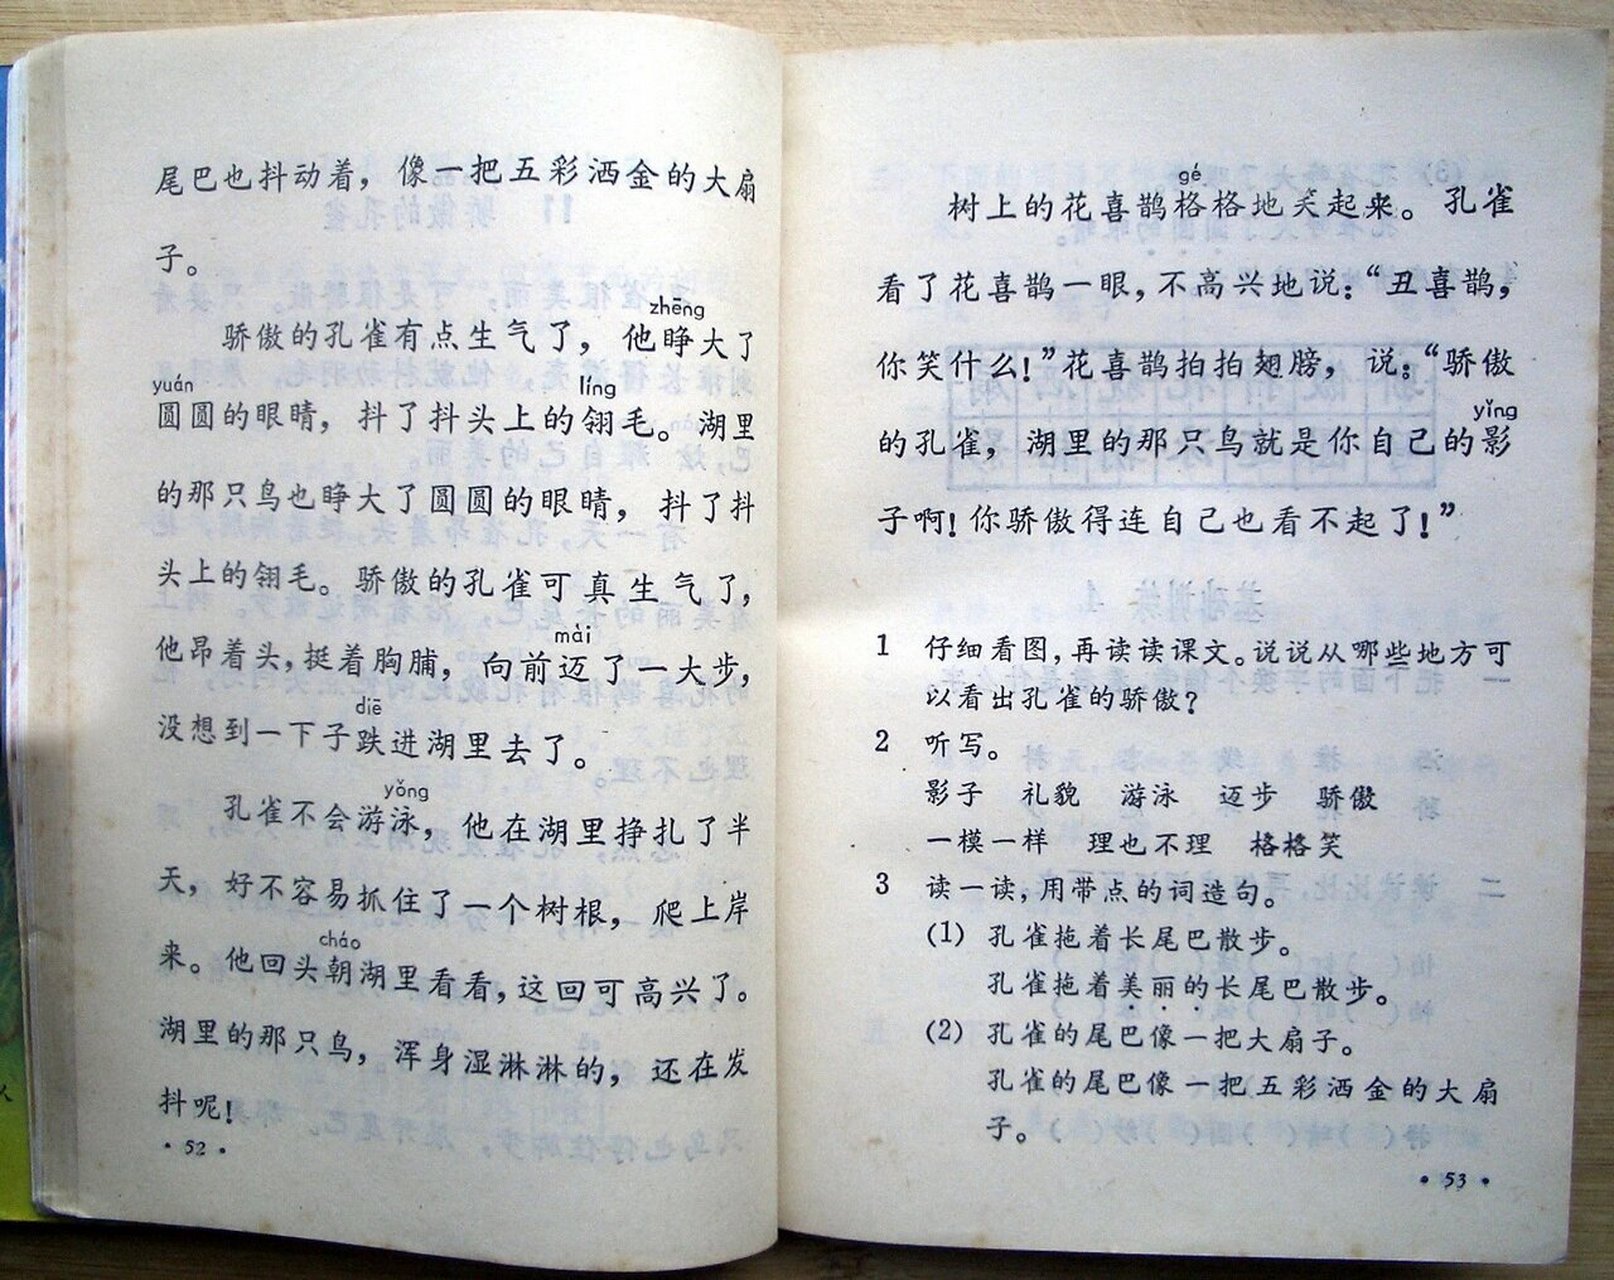 尾巴也抖动着，像一把五彩洒金的大扇
子。
zhēng
骄傲的孔雀有点生气了，他睁大了
yuán líng
圆圆的眼睛，抖了抖头上的翎毛。湖里
的那只鸟也睁大了圆圆的眼睛，抖了抖
头上的翎毛。骄傲的孔雀可真生气了，
mài
他昂着头，挺着胸脯，向前迈了一大步，
diē
没想到一下子跌进湖里去了。
yǒng
孔雀不会游泳，他在湖里挣扎了半
天，好不容易抓住了一个树根，爬上岸
cháo
来。他回头朝湖里看看，这回可高兴了。
湖里的那只鸟，浑身湿淋淋的，还在发
抖呢！
·52·
gé
树上的花喜鹊格格地笑起来。孔雀
看了花喜鹊一眼，不高兴地说：“丑喜鹊，
你笑什么！”花喜鹊拍拍翅膀，说：“骄傲
yǐng
的孔雀，湖里的那只鸟就是你自己的影
子啊！你骄傲得连自己也看不起了！”
1 仔细看图，再读读课文。说说从哪些地方可
以看出孔雀的骄傲？
2 听写。
影子 礼貌 游泳 迈步 骄傲
一模一样 理也不理 格格笑
3 读一读，用带点的词造句。
(1) 孔雀拖着长尾巴散步。
孔雀拖着美丽的长尾巴散步。
(2) 孔雀的尾巴像一把大扇子。
孔雀的尾巴像一把五彩洒金的大扇
子。
·53·